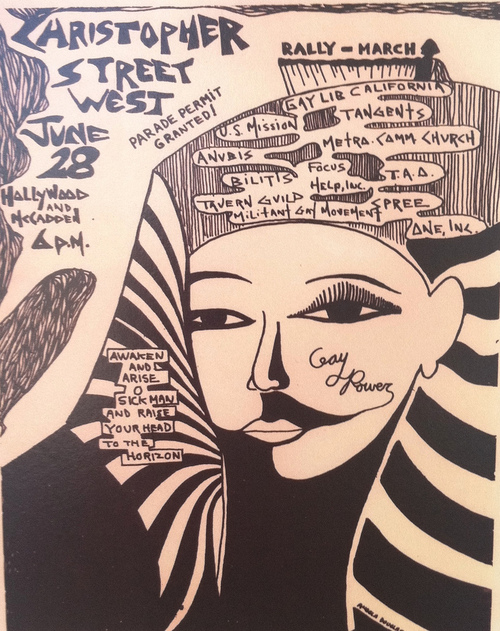 CHRISTOPHER
STREET
WEST
JUNE
28
PARADE PERMIT
GRANTED!
HOLLYWOOD
AND
McCADDEN
6 P.M.
RALLY - MARCH
GAY LIB CALIFORNIA
TANGENTS
U.S. MISSION
METRO. COMM. CHURCH
ANUBIS
FOCUS
BILITIS
T.A.O.
HELP, INC.
TAVERN GUILD
SPREE
MILITANT GAY MOVEMENT
ONE, INC.
Gay
Power
AWAKEN
AND
ARISE
O
SICK MAN
AND RAISE
YOUR HEAD
TO THE
HORIZON